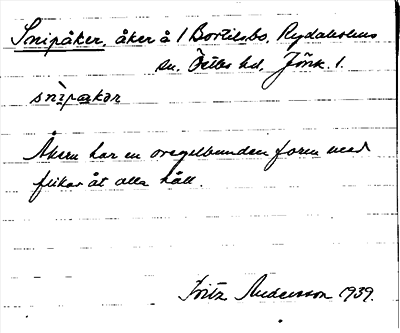 Snipåker, åker å 1 Bortilsbo, Rydaholms
sn. Östbo hd, Jönk. l.
snìpakər
Åkern har en oregelbunden form med
flikar åt alla håll.
Fritz Andersson 1939.